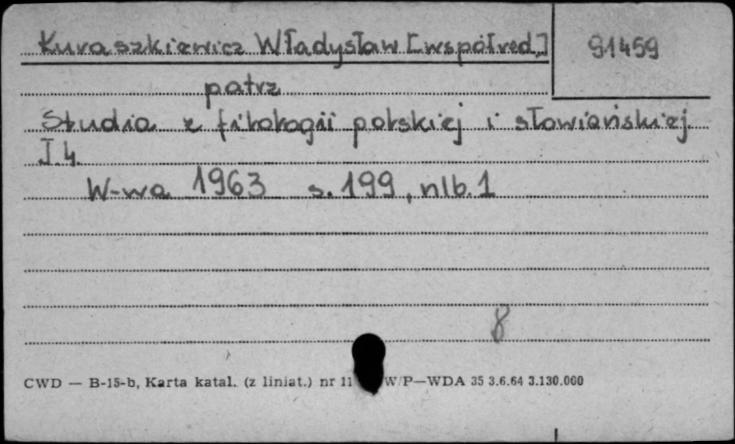 Kuraszkiewicz Władysław [współred.] 91459
patrz
Studia z filologii polskiej i słowiańskiej.
T. 4.
W-wa 1963 s. 199, nlb. 1
8
CWD — B-15-b, Karta katal. (z liniat.) nr 11 W/P—WDA 35 3.6.64 3.130.000